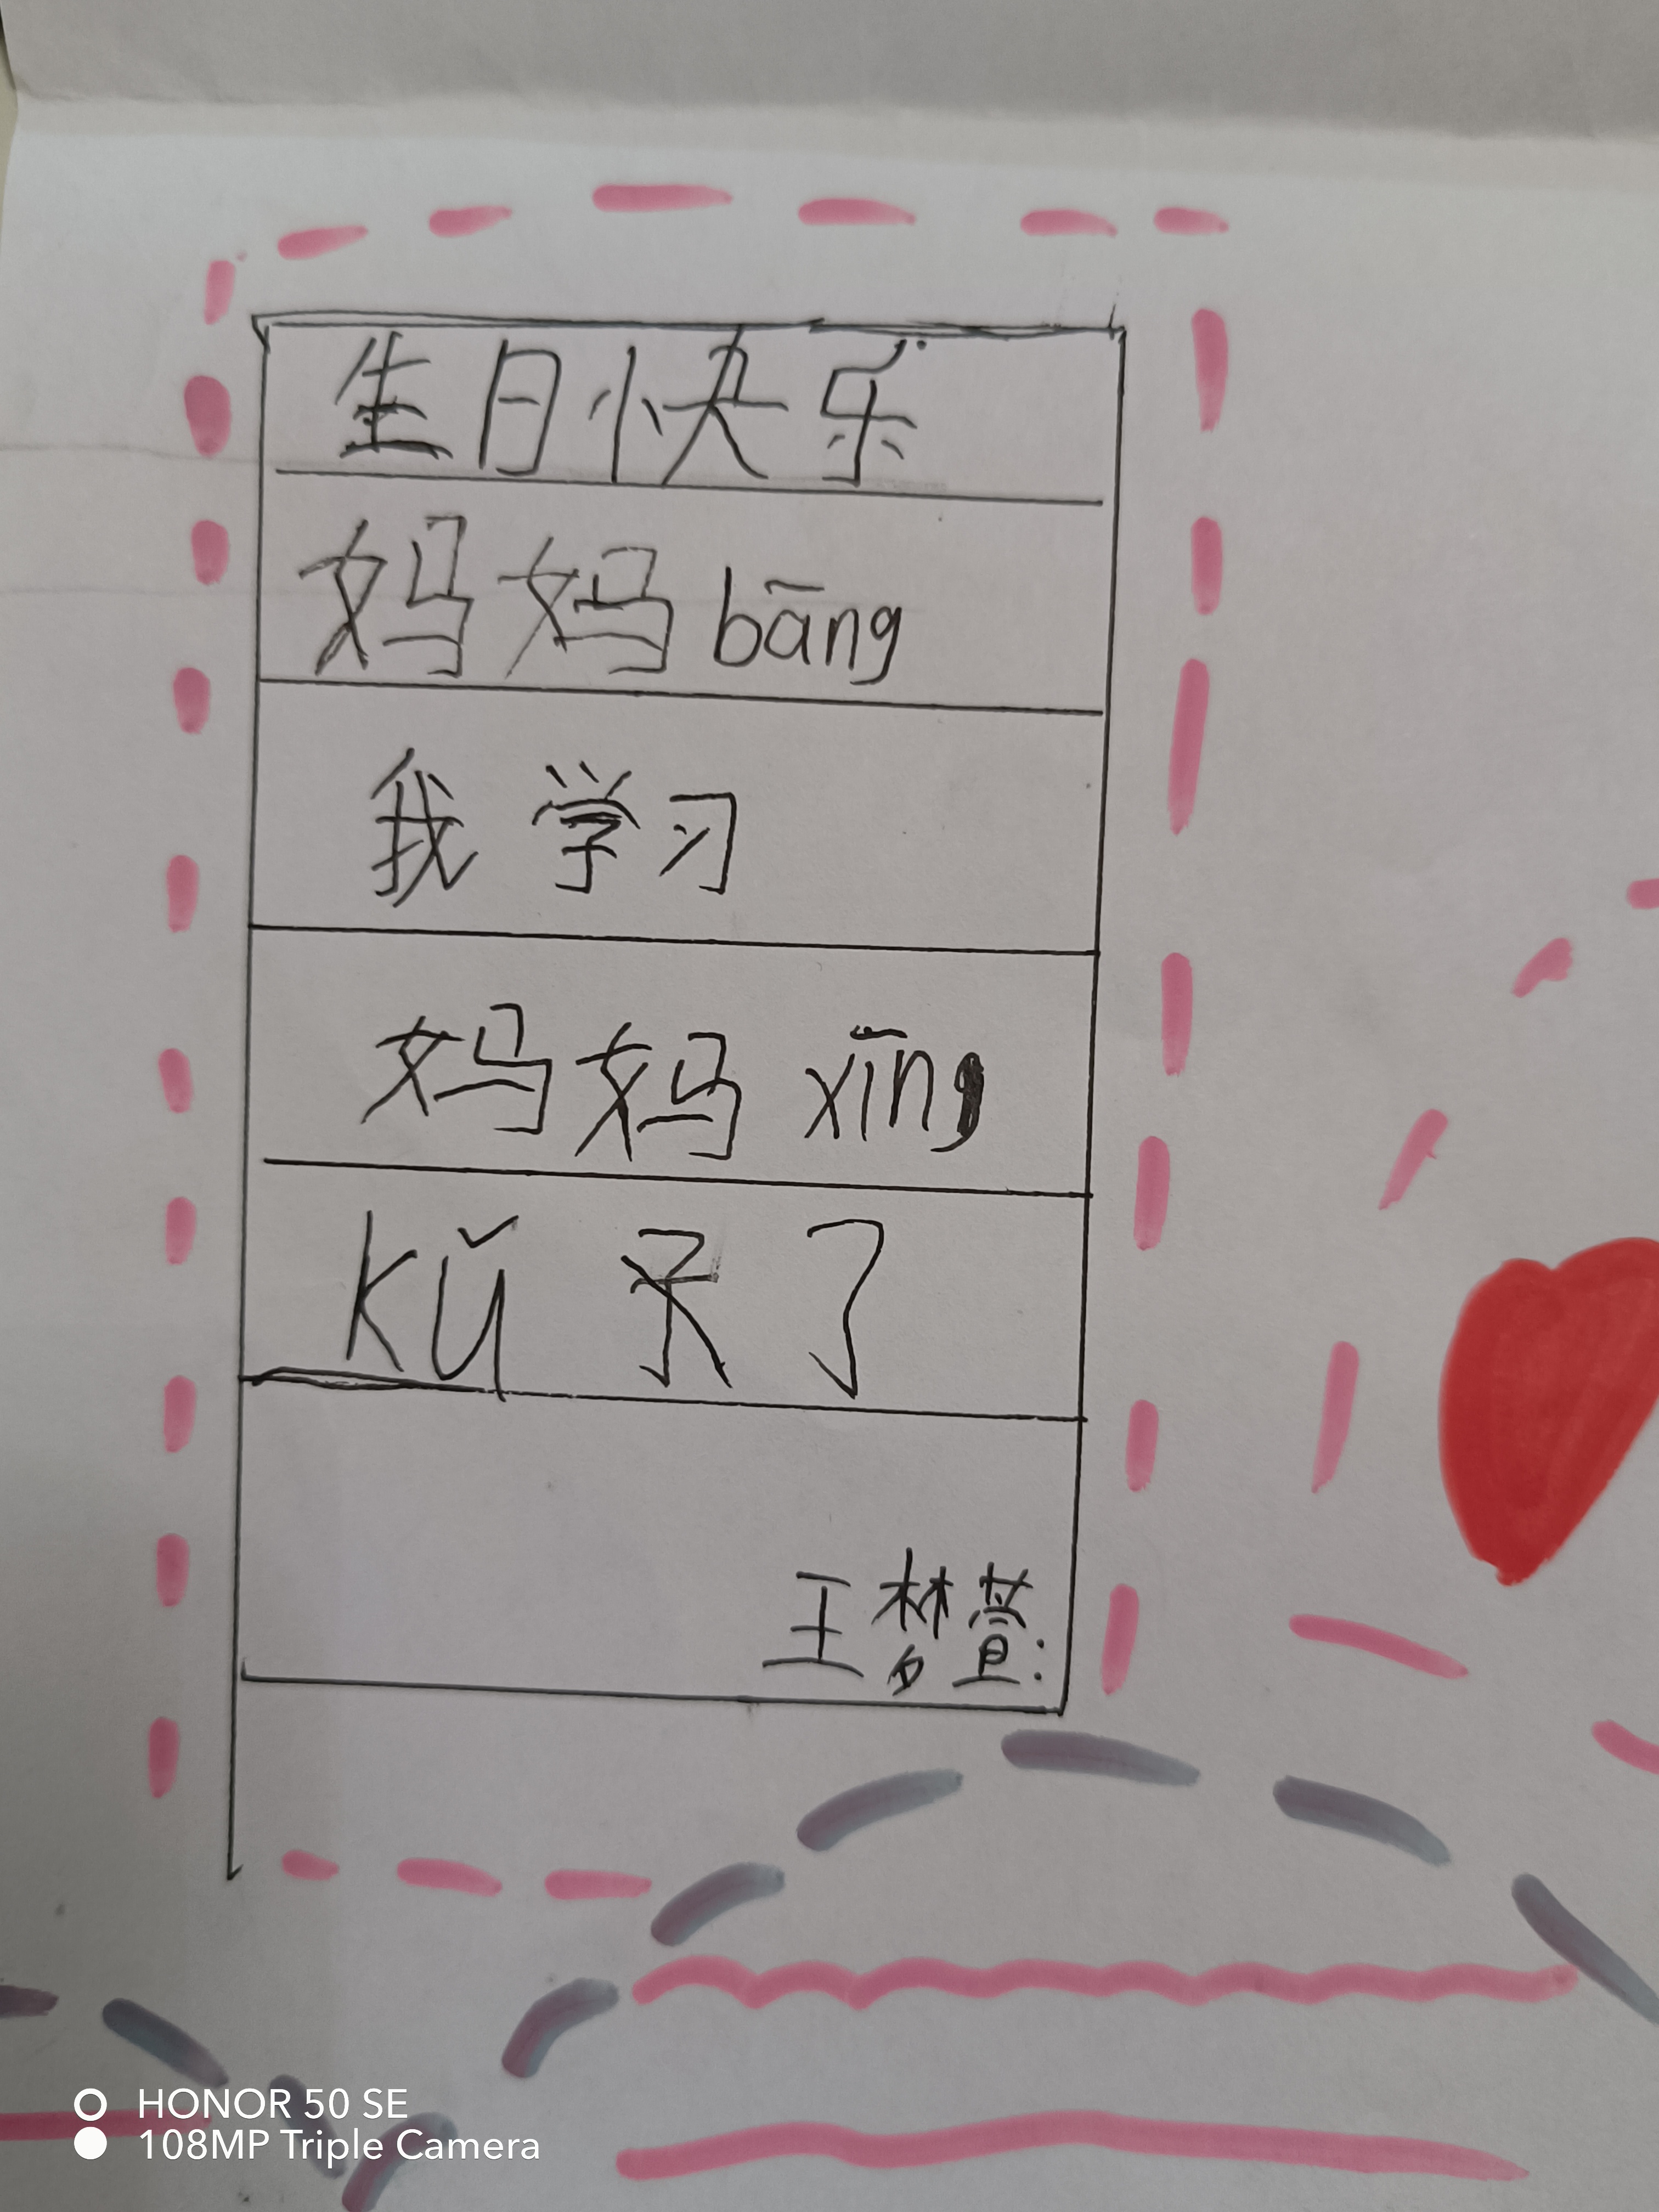 生日快乐
妈妈bāng
我学习
妈妈xīng
kǔ 了
王梦萱:
HONOR 50 SE
108MP Triple Camera